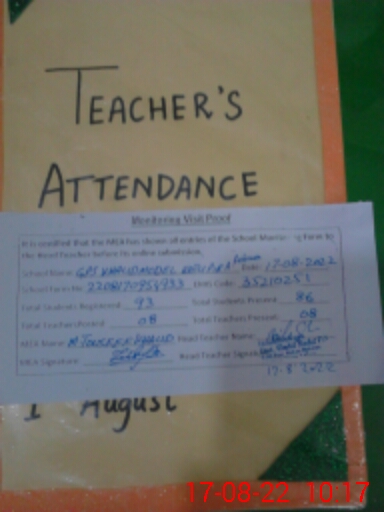 TEACHER'S
ATTENDANCE
Monitoring Visit Proof
It is certified that the MEA has shown all entries of the School Monitoring Form to
the Head Teacher before its online submission.
School Name: GPS KHALID MODEL Date: 17-08-2022
School Form No 2208170953933 EMIS Code: 35210251
Total Students Registered: 93 Total Students Present: 86
Total Teachers Posted: 08 Total Teachers Present: 08
MEA Name: M. KHALID Head Teacher Name:
MEA Signature Head Teacher Signature
17.8.2022
1 August
17-08-22 10:17